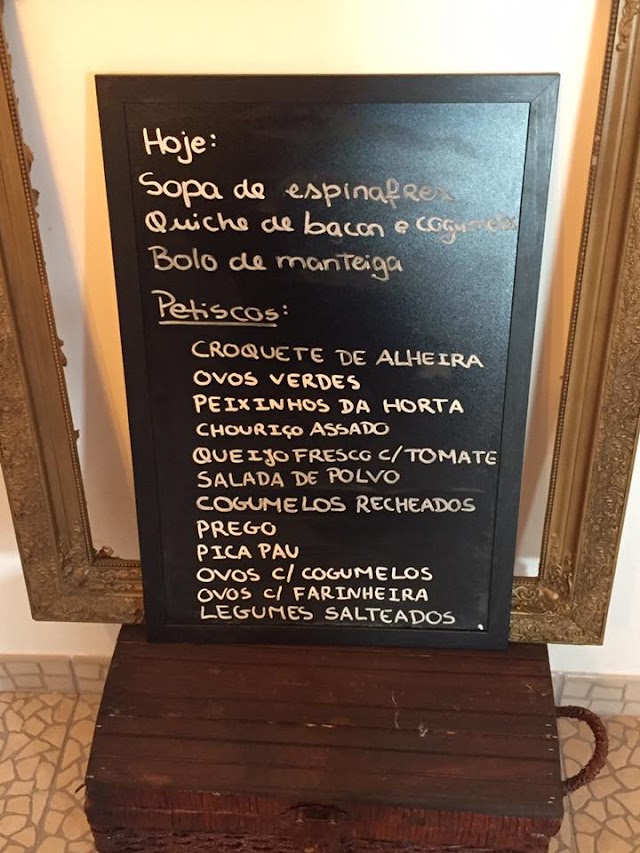 Hoje:
Sopa de espinafres
Quiche de bacon e cogumelos
Bolo de manteiga
Petiscos:
CROQUETE DE ALHEIRA
OVOS VERDES
PEIXINHOS DA HORTA
CHOURIÇO ASSADO
QUEIJO FRESCO C/TOMATE
SALADA DE POLVO
COGUMELOS RECHEADOS
PREGO
PICA PAU
OVOS C/ COGUMELOS
OVOS C/ FARINHEIRA
LEGUMES SALTEADOS